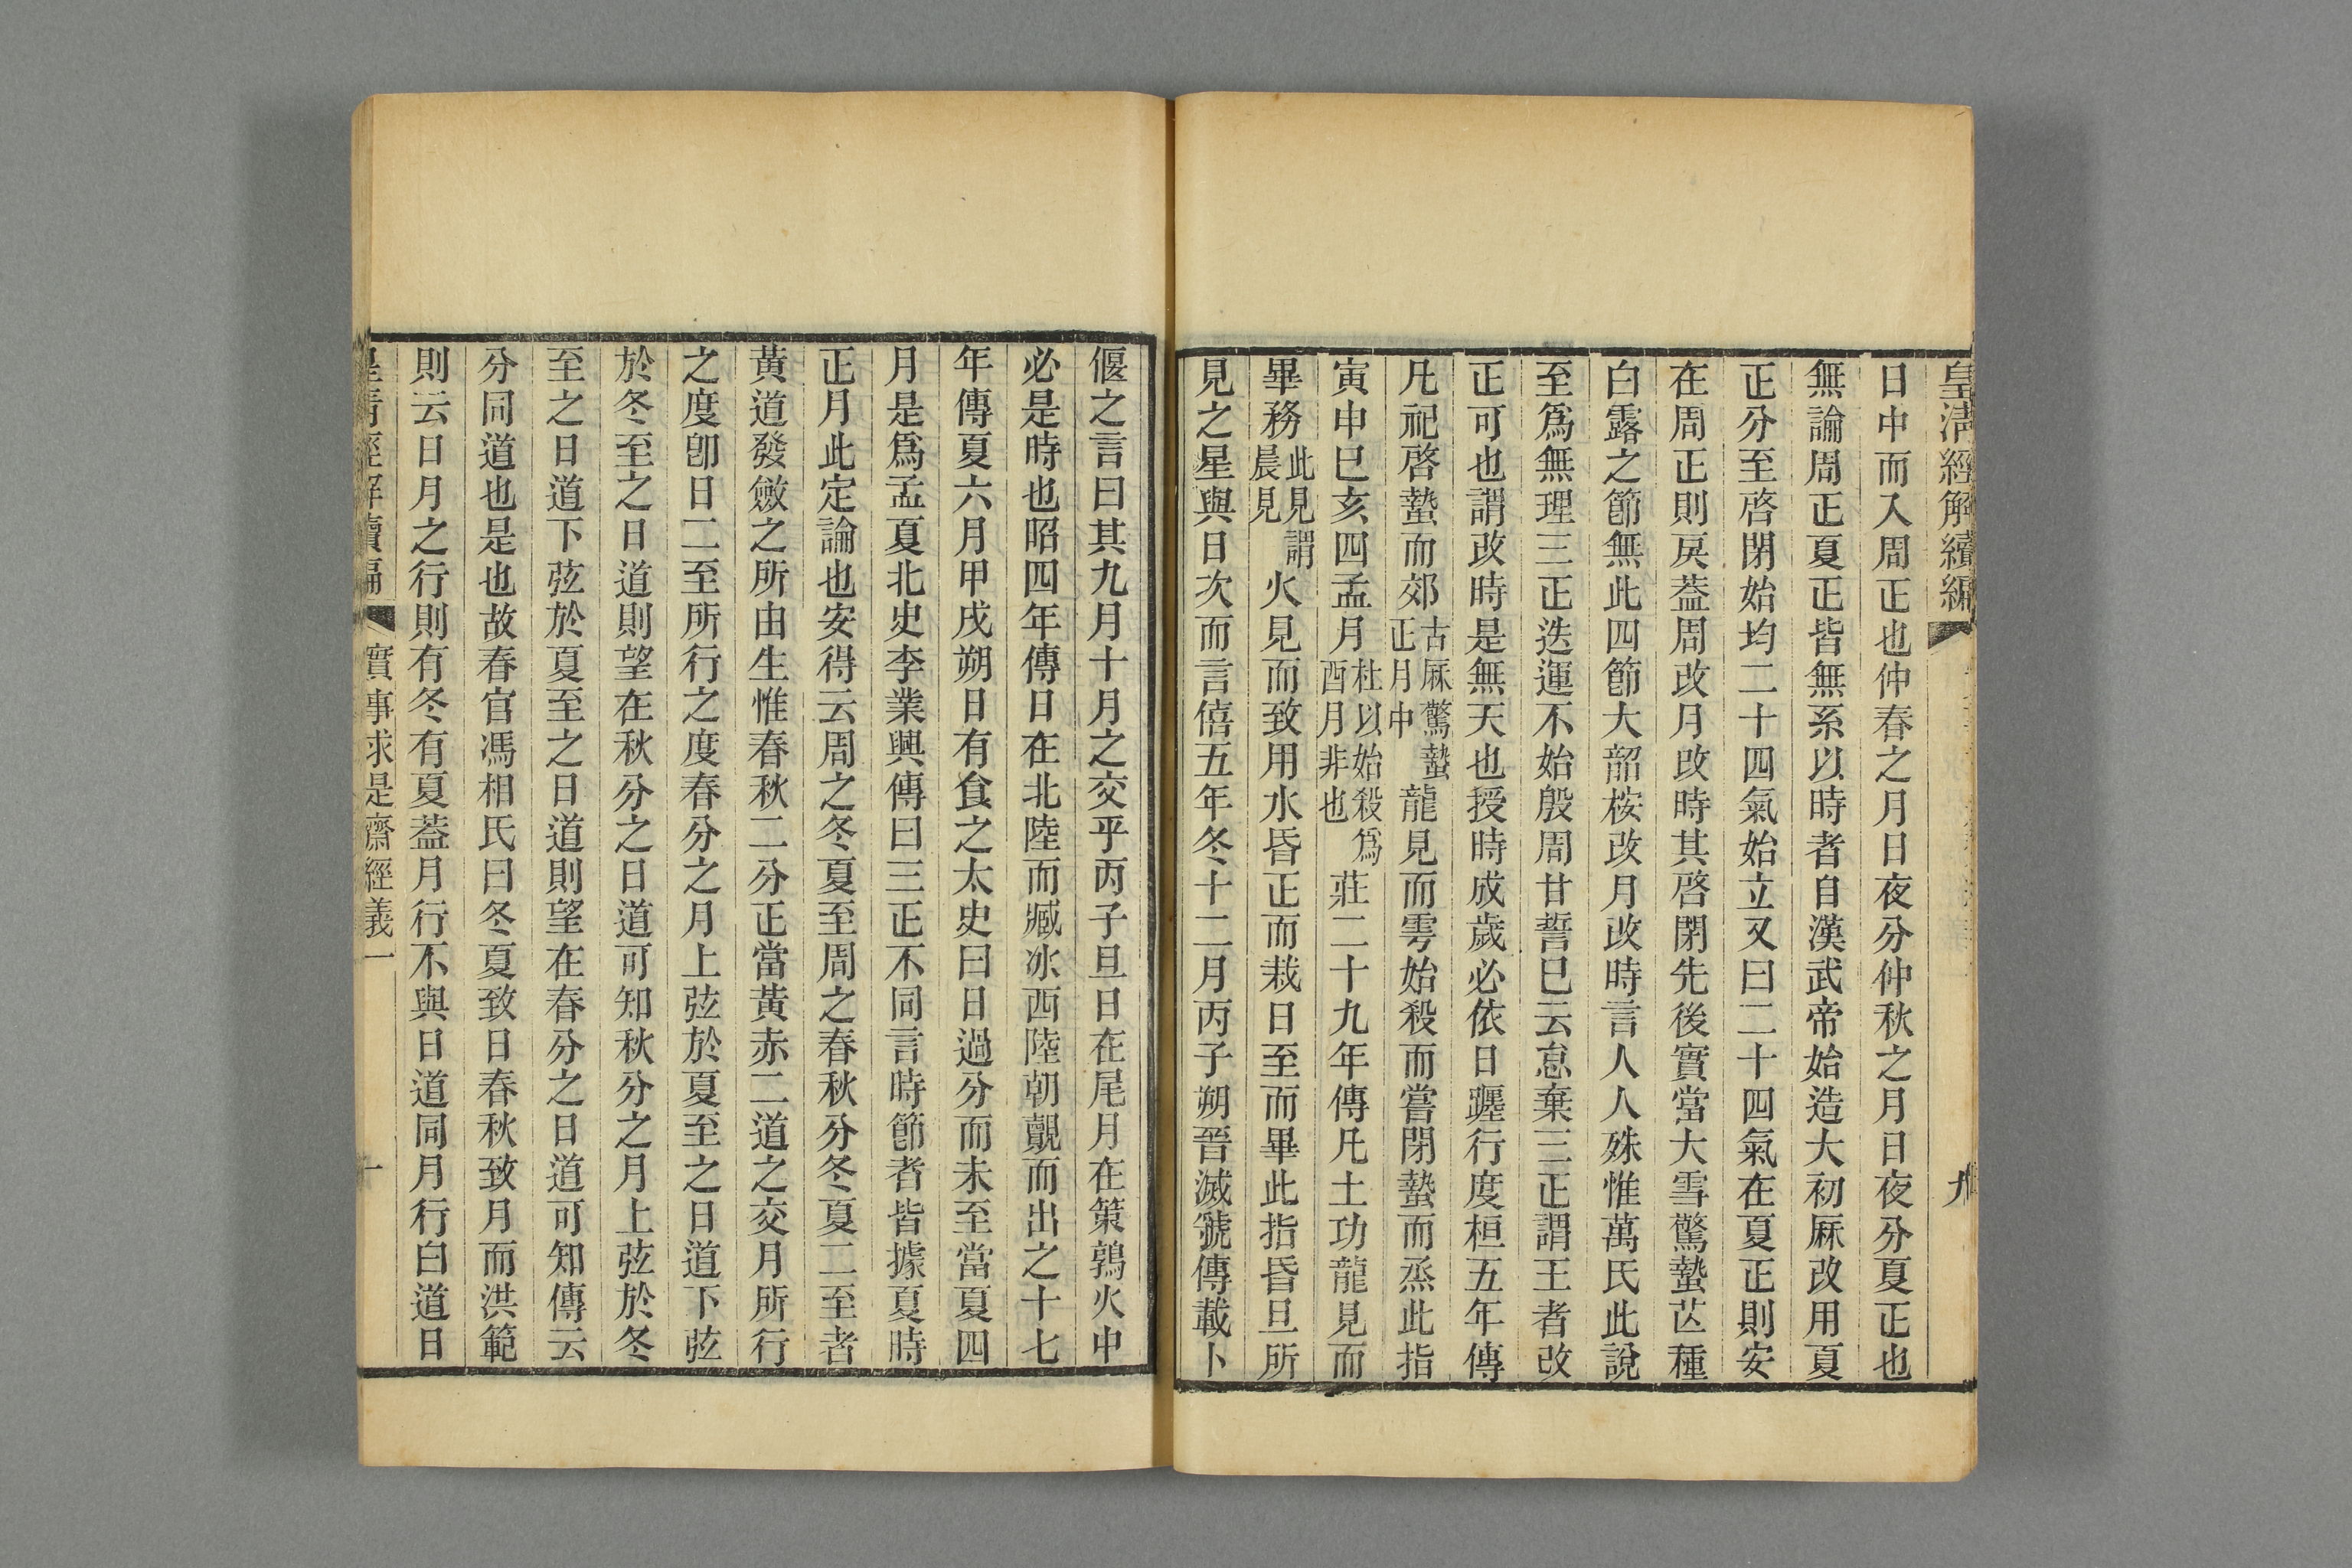 皇清經解續編
九
日中而入周正也仲春之月日夜分仲秋之月日夜分夏正也
無論周正夏正皆無系以時者自漢武帝始造大初厤改用夏
正分至啓閉始均二十四氣始立又曰二十四氣在夏正則安
在周正則戾葢周改月改時其啓閉先後實當大雪驚蟄芒種
白露之節無此四節大韶桉改月改時言人人殊惟萬氏此說
至爲無理三正迭運不始殷周甘誓已云怠棄三正謂王者改
正可也謂改時是無天也授時成歲必依日躔行度桓五年傳
凡祀啓蟄而郊古厤驚蟄正月中龍見而雩始殺而嘗閉蟄而烝此指
寅申巳亥四孟月杜以始殺爲酉月非也莊二十九年傳凡土功龍見而
畢務此見謂晨見火見而致用水昏正而栽日至而畢此指昏旦所
見之星與日次而言僖五年冬十二月丙子朔晉滅虢傳載卜
偃之言曰其九月十月之交乎丙子旦日在尾月在策鶉火中
必是時也昭四年傳日在北陸而臧冰西陸朝覿而出之十七
年傳夏六月甲戌朔日有食之太史曰日過分而未至當夏四
月是爲孟夏北史李業興傳曰三正不同言時節者皆據夏時
正月此定論也安得云周之冬夏至周之春秋分冬夏二至者
黃道發斂之所由生惟春秋二分正當黃赤二道之交月所行
之度卽日二至所行之度春分之月上弦於夏至之日道下弦
於冬至之日道則望在秋分之日道可知秋分之月上弦於冬
至之日道下弦於夏至之日道則望在春分之日道可知傳云
分同道也是也故春官馮相氏曰冬夏致日春秋致月而洪範
則云日月之行則有冬有夏葢月行不與日道同月行白道日
皇清經解續編
實事求是齋經義一
十